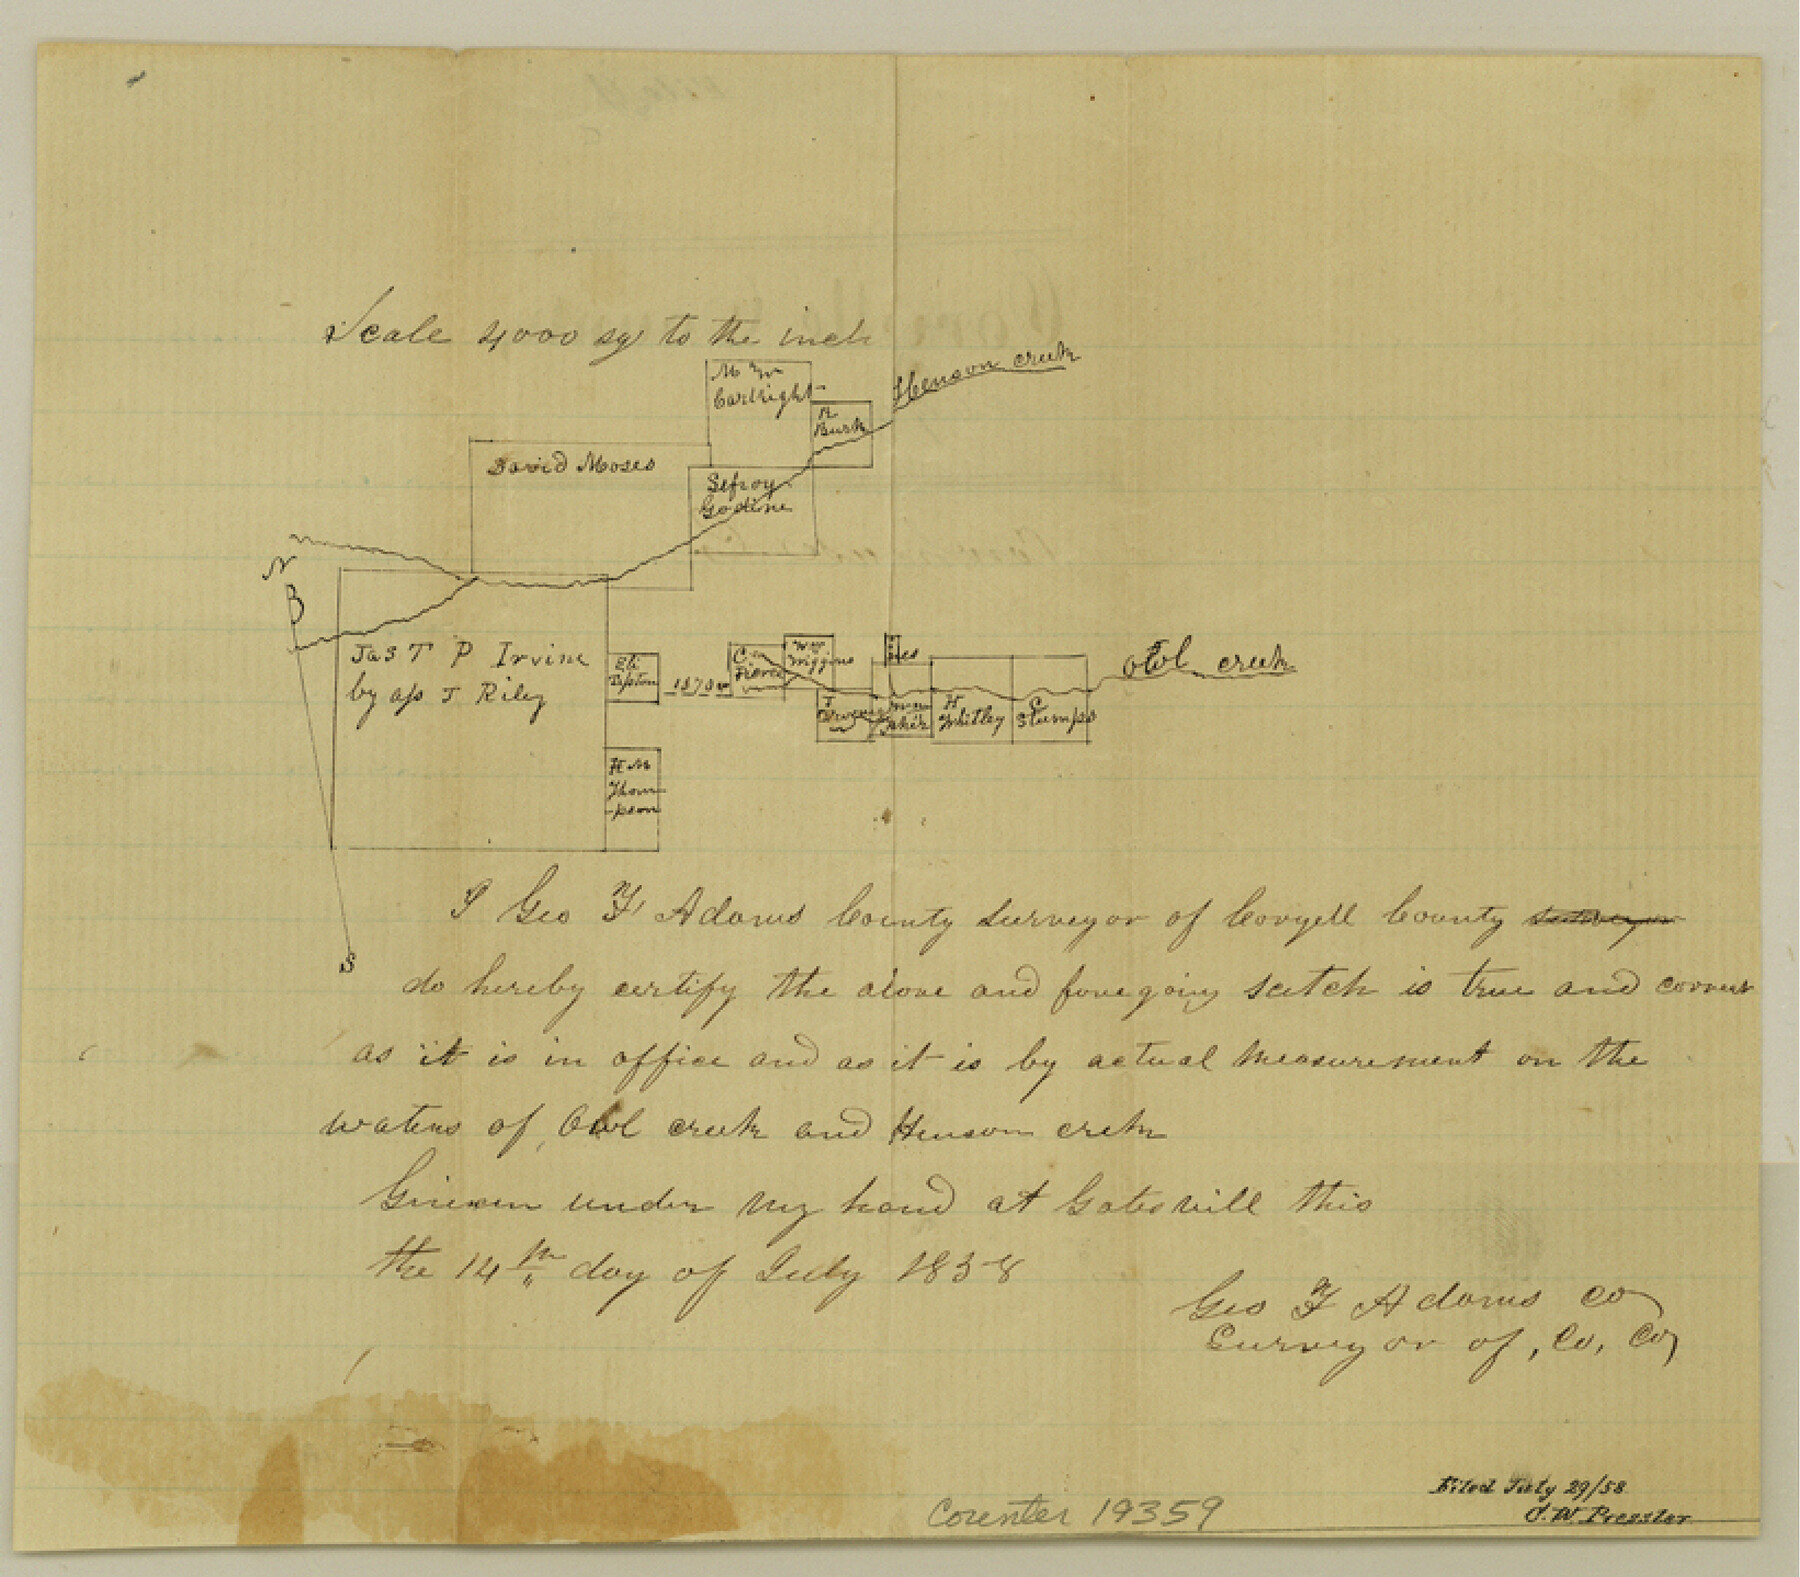 Scale 4000 sq to the inch
M Mc
Carthright
R
Burk
Henson creek
David Moses
Sefroy
Godine
N
B
S
Jas T P Irvine
by as J Riley
Eli
Tipton
1570 vr
C
Pierce
W W
Wiggins
H M
Thom-
-pson
H
Whitley
C
Stumps
Owl creek
I Geo F Adams County Surveyor of Coryell County surveyor
do hereby certify the above and foregoing scetch is true and correct
as it is in office and as it is by actual measurement on the
waters of Owl creek and Henson creek
Given under my hand at Gatesvill this
the 14th day of July 1858
Geo F Adams Co
Surveyor of, Co, Co,
Counter 19359
Filed July 29/58
J. W. Pressler